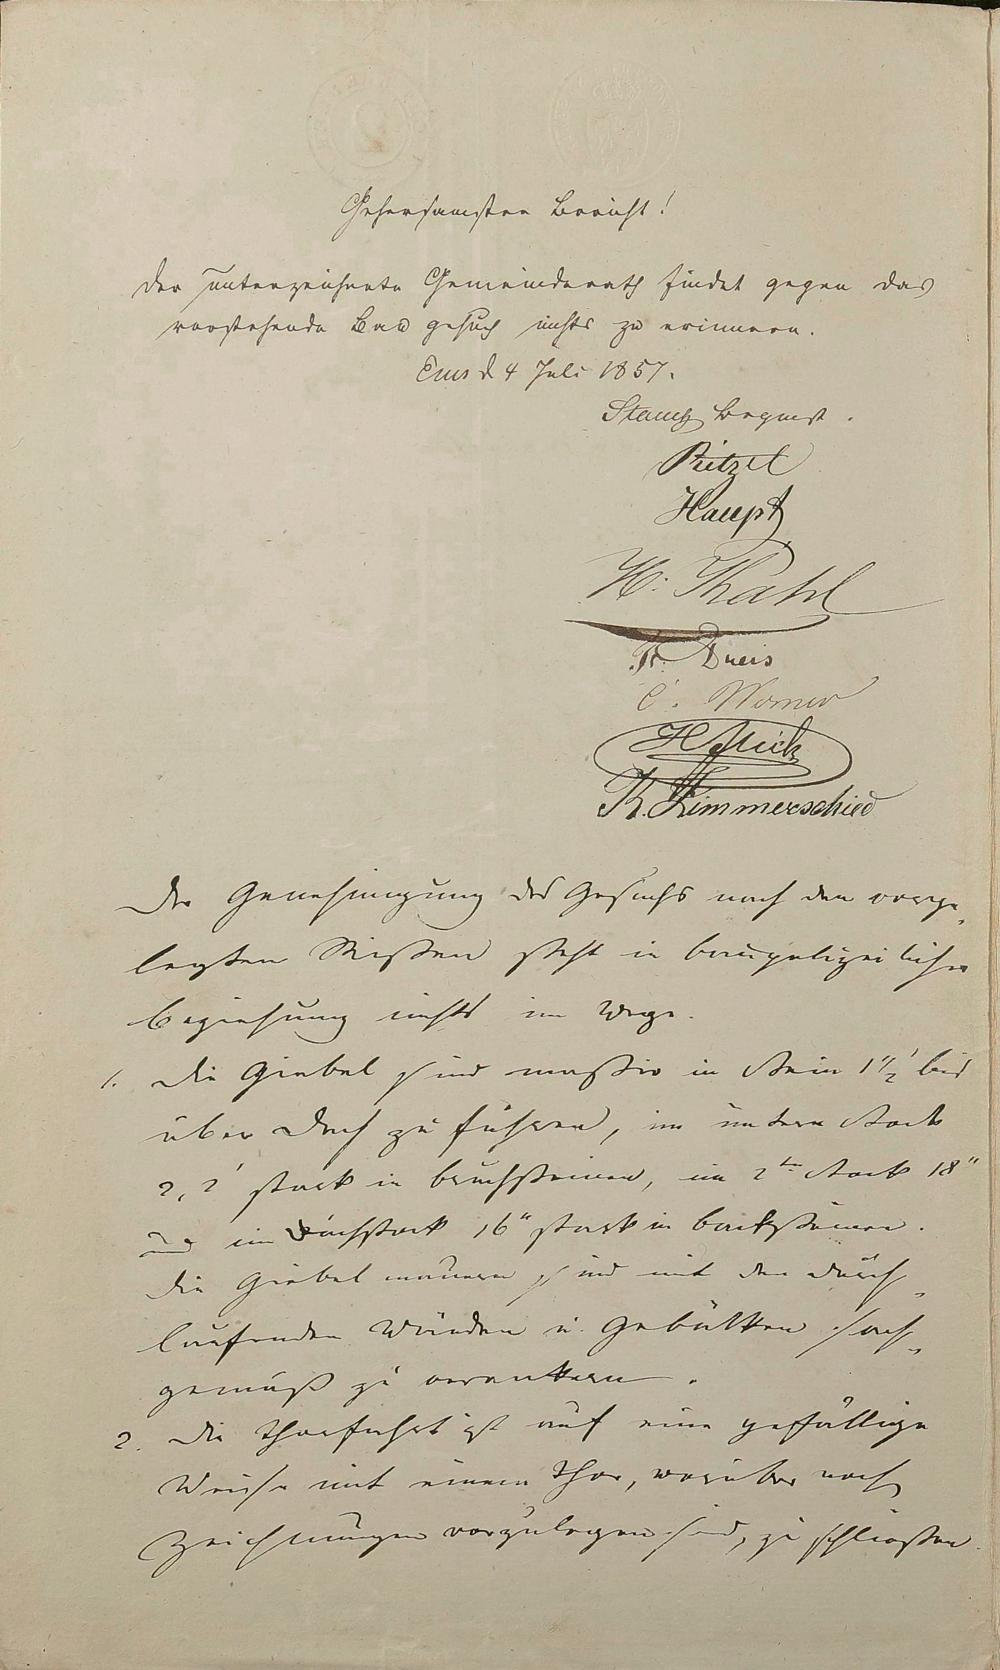 Gehorsamster Bericht!
Der unterzeichnete Gemeinderath findet gegen das
vorstehende Baugesuch nichts zu erinnern.
Ems d 4 Juli 1857.
Pitzel
Haupt
H. Thahl
C.
H
K. Zimmerschied
Der Genehmigung des Gesuchs nach den vorge-
legten Rissen steht in baupolizeilicher
Beziehung nichts im Wege.
1. Die Giebel sind massiv in Stein 1 1/2' bis
über Dach zu führen, im untern Stock
2,2' stark in Bruchsteinen, im 2ten Stock 18"
und im Dachstock 16" stark in Backsteinen.
Die Giebelmauern sind mit den durch-
laufenden Wänden u. Gebälken sach-
gemäß zu verankern.
2. Die Thorfahrt ist auf eine gefällige
Weise mit einem Thor, worüber noch
Zeichnungen vorzulegen sind, zu schließen.